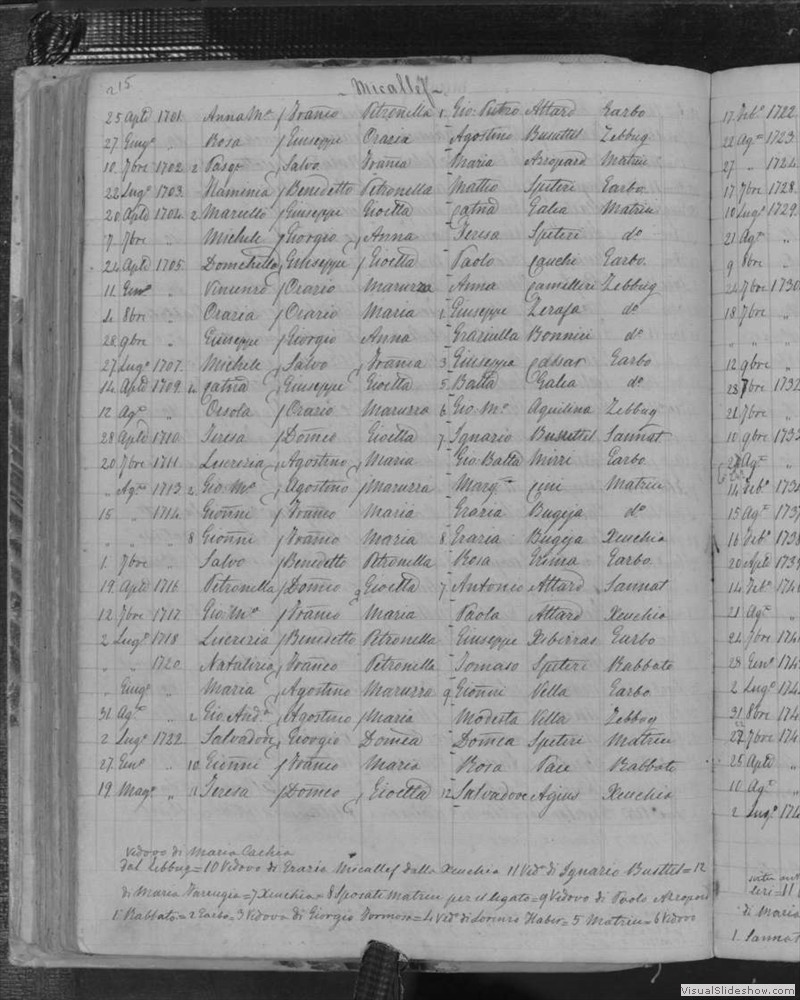 215
Micallef
25 Aple 1701 Anna Ma Franco Petronella 1 Gio: Pietro Attard Garbo
27 Giugo " Rosa Giuseppe Orazia Agostino Busuttil Zebbug
10 7bre 1702 2 Pasqe Salvo Frania Maria Azzopard Matrice
22 Lugo 1703 Flaminia Benedetto Petronella Matteo Spiteri Garbo
20 Aple 1704 2 Marcello Giuseppe Gioetta Catna Galea Matrice
7 7bre " Michele Giorgio Anna Teresa Spiteri do
21 Aple 1705 Domenichella Giuseppe Gioetta Paolo Cauchi Garbo
11 Geno " Vincenzo Orazio Maruzza Anna Camilleri Zebbug
4 8bre " Orazia Orazio Maria 1 Giuseppe Zerafa do
28 9bre " Giuseppe Giorgio Anna Graziella Bonnici do
27 Lugo 1707 Michele Salvo Frania 3 Giuseppa Cassar Garbo
14 Aple 1709 4 Catna Giuseppe Gioetta 5 Batta Galea do
12 Ago " Orsola Orazio Maruzza 6 Gio: Ma Aquilina Zebbug
28 Aple 1710 Teresa Domco Gioetta 7 Ignazio Busuttil Sannat
20 7bre 1711 Lucrezia Agostino Maria Gio: Batta Mizzi Garbo
" Ago 1713 2 Gio: Ma Agostino Maruzza Marga Cini Matrice
15 " 1714 Gionni Franco Maria Grazia Bugeja do
" " " 8 Gionni Franco Maria 8 Grazia Bugeja Xeuchia
1 7bre " Salvo Benedetto Petronella Rosa Grima Garbo
19 Aple 1716 Petronella Domco Gioetta 7 Antonio Attard Sannat
12 7bre 1717 Gio: Ma Franco Maria Paola Attard Xeuchia
2 Lugo 1718 Lucrezia Benedetto Petronella Giuseppe Xiberras Garbo
" " 1720 Natalizia Franco Petronella Tomaso Spiteri Rabbato
" Giugo " Maria Agostino Maruzza 9 Gionni Vella Garbo
31 Ago " 2 Gio: Anda Agostino Maria Modesta Vella Zebbug
2 Lugo 1722 Salvadore Giorgio Domca Domca Spiteri Matrice
27 Geno " 10 Gionni Franco Maria Rosa Pace Rabbato
19 Mago " 11 Teresa Domco Gioetta 12 Salvadore Agius Xeuchia
Vedovo di Maria Cachia
dal Zebbug = 10 Vedovo di Grazia Micallef dalla Xeuchia 11 Veda di Ignazio Busuttil = 12
di Maria Farrugia = 7 Xeuchia = 8 Sposati Matrice per il legato = 9 Vedovo di Paola Azzopard
1 Rabbato = 2 Garbo = 3 Vedova di Giorgio Formosa = 4 Veda di Lorenzo Haber = 5 Matrice = 6 Vedovo
17 Febo 1722
22 Ago 1723
27 " 1724
17 7bre 1728
10 Lugo 1729
21 Ago "
9 8bre "
24 7bre 1730
18 7bre "
" " "
12 9bre "
28 7bre 1732
21 7bre "
10 9bre
Ago "
14 Febo
15 Ago
16 Febo
20 Aple
14 Febo
21 Ago
24 7bre
28 Geno
2 Lugo
31 8bre
7bre
25 Aple
10 Ago
2 Lugo
di Maria
1 Sannat
VisualSlideshow.com